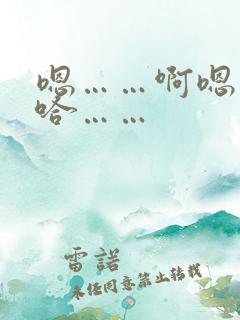 嗯……啊嗯
哈……
雷諾
未经同意禁止转载